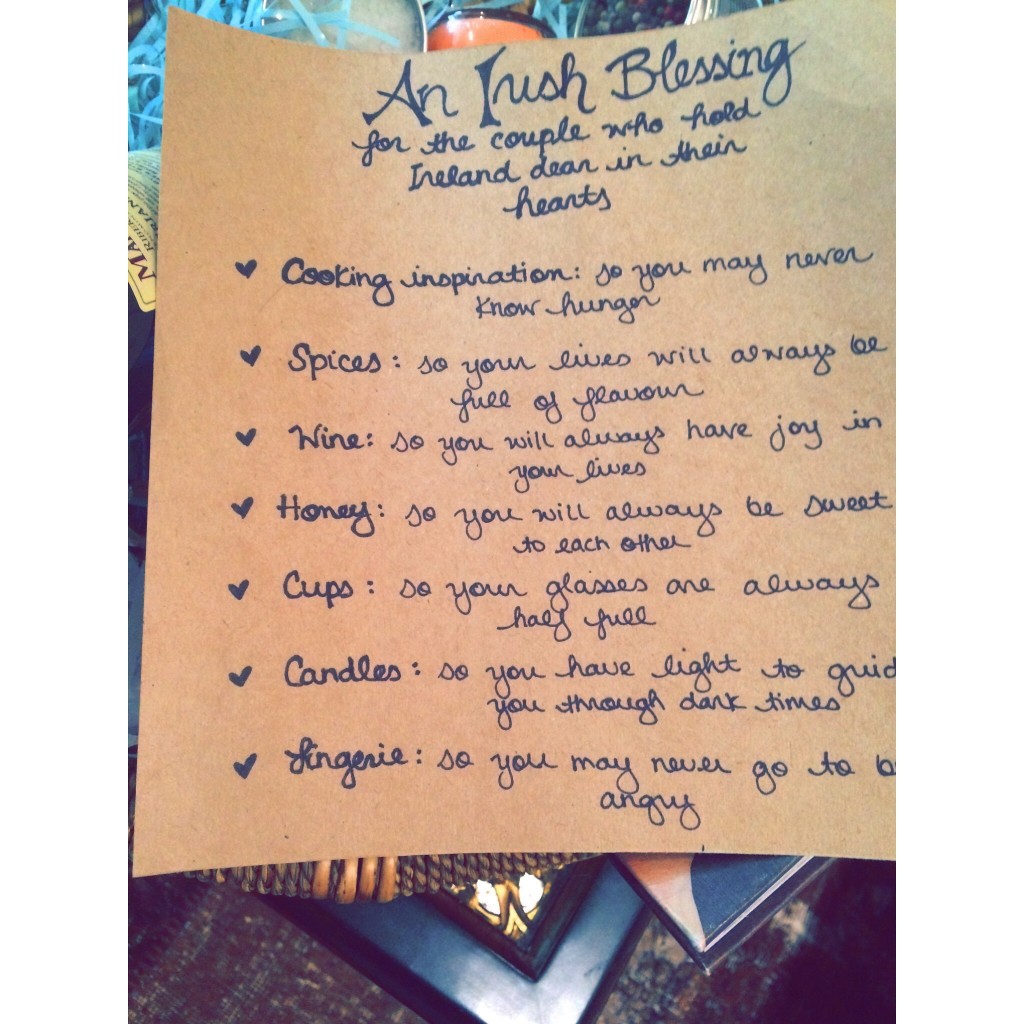 An Irish Blessing
for the couple who hold
Ireland dear in their
hearts
Cooking inspiration: so you may never
know hunger
Spices: so your lives will always be
full of flavour
Wine: so you will always have joy in
your lives
Honey: so you will always be sweet
to each other
Cups: so your glasses are always
half full
Candles: so you have light to guid
you through dark times
Lingerie: so you may never go to b
angry